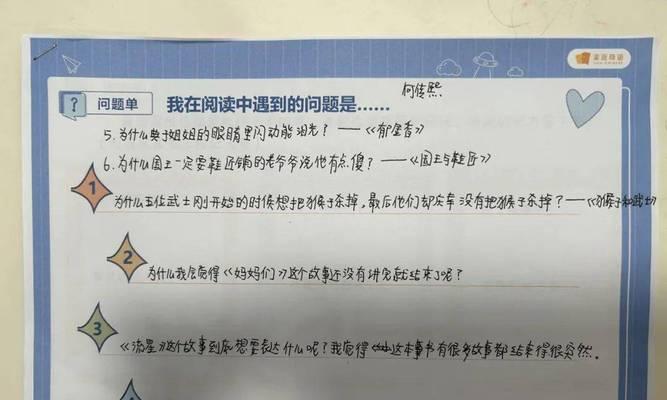 亲近母语
问题单
我在阅读中遇到的问题是……
何佳熙
5.为什么 姐姐的眼睛里闪动能泪光?——《郁金香》
6.为什么国王一定要鞋匠铺的老爷爷说他有点傻?——《国王与鞋匠》
1
为什么五位武士刚开始的时候想把猴子杀掉,最后他们却 没有把猴子杀掉?——《猴子和武士》
2
为什么我总觉得《妈妈们》这个故事还没有讲完就结束了呢?
3
《流星》这个故事到底想要表达什么呢?我觉得 这本事书有很多故事都结束得很突然。